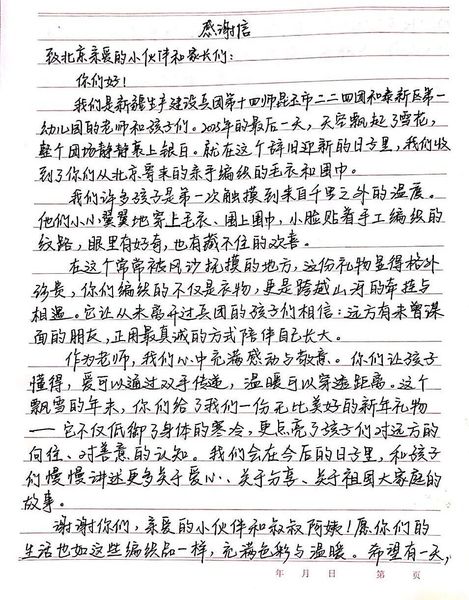 感谢信
致北京亲爱的小伙伴和家长们：
你们好！
我们是新疆生产建设兵团第十四师昆玉市二二四团和泰新区第一
幼儿园的老师和孩子们。2025年的最后一天，天空飘起了雪花，
整个团场静静裹上银白。就在这个辞旧迎新的日子里，我们收
到了你们从北京寄来的亲手编织的毛衣和围巾。
我们许多孩子是第一次触摸到来自千里之外的温度。
他们小心翼翼地穿上毛衣、围上围巾，小脸贴着手工编织的
纹路，眼里有好奇，也有藏不住的欢喜。
在这个常常被风沙抚摸的地方，这份礼物显得格外
珍贵，你们编织的不仅是衣物，更是跨越山河的牵挂与
相遇。它让从未离开过兵团的孩子们相信：远方有未曾谋
面的朋友，正用最真诚的方式陪伴自己长大。
作为老师，我们心中充满感动与敬意。你们让孩子
懂得，爱可以通过双手传递，温暖可以穿透距离。这个
飘雪的年末，你们给了我们一份无比美好的新年礼物
——它不仅抵御了身体的寒冷，更点亮了孩子们对远方的
向往、对善意的认知。我们会在今后的日子里，和孩子
们慢慢讲述更多关于爱心、关于分享、关于祖国大家庭的
故事。
谢谢你们，亲爱的小伙伴和叔叔阿姨！愿你们的
生活也如这些编织品一样，充满色彩与温暖。希望有一天，
年 月 日 第 页